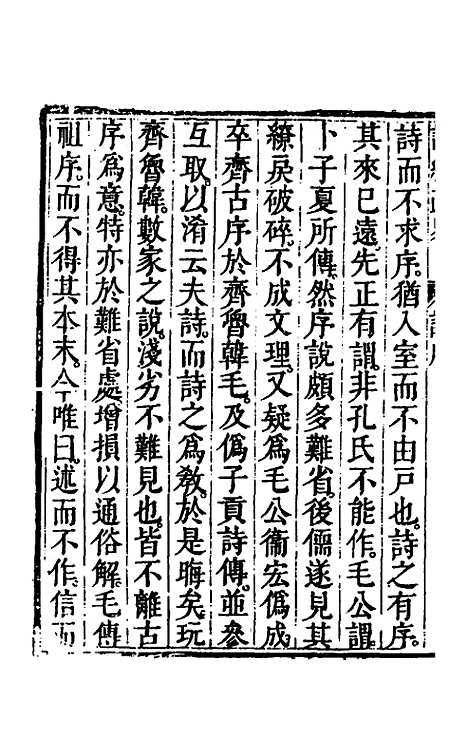 詩而不求序。猶入室而不由戶也。詩之有序。
其來已遠。先正有謂。非孔氏不能作。毛公謂。
卜子夏所傳。然序說頗多難省。後儒遂見其
繚戾破碎。不成文理。又疑爲毛公衞宏僞成。
卒齊古序於齊魯韓毛。及僞子貢詩傳。並參
互取。以淆云夫詩。而詩之爲敎。於是晦矣。玩
齊魯韓。數家之說。淺劣不難見也。皆不離古
序爲意。特亦於難省處。增損以通俗解。毛傳
祖序。而不得其本末。今唯曰。述而不作。信而